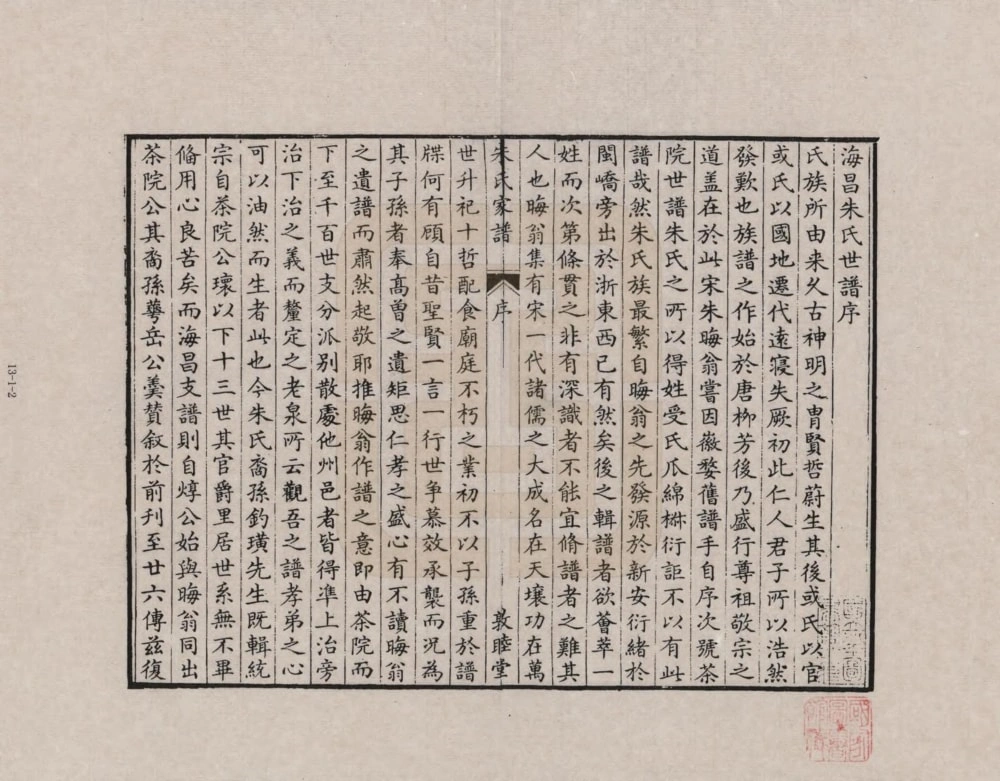 海昌朱氏世譜序
氏族所由来久古神明之胄賢哲蔚生其後或氏以官
或氏以國地遷代遠寖失厥初此仁人君子所以浩然
發歎也族譜之作始於唐柳芳後乃盛行尊祖敬宗之
道盖在於此宋朱晦翁嘗因徽婺舊譜手自序次號茶
院世譜朱氏之所以得姓受氏瓜綿椒衍詎不以有此
譜哉然朱氏族最繁自晦翁之先發源於新安衍緒於
閩嶠旁出於浙東西已有然矣後之輯譜者欲薈萃一
姓而次第條貫之非有深識者不能宜脩譜者之難其
人也晦翁集有宋一代諸儒之大成名在天壤功在萬
朱氏家譜 序 敦睦堂
世升祀十哲配食廟庭不朽之業初不以子孫重於譜
牒何有顧自昔聖賢一言一行世争慕效承襲而况為
其子孫者奉高曽之遺矩思仁孝之盛心有不讀晦翁
之遺譜而肅然起敬耶推晦翁作譜之意即由茶院而
下至千百世支分派别散處他州邑者皆得準上治旁
治下治之義而釐定之老泉所云觀吾之譜孝弟之心
可以油然而生者此也今朱氏裔孫釣璜先生既輯統
宗自茶院公瓌以下十三世其官爵里居世系無不畢
俻用心良苦矣而海昌支譜則自焞公始與晦翁同出
茶院公其裔孫蕚岳公羹賛叙於前刊至廿六傳兹復
13-1-2